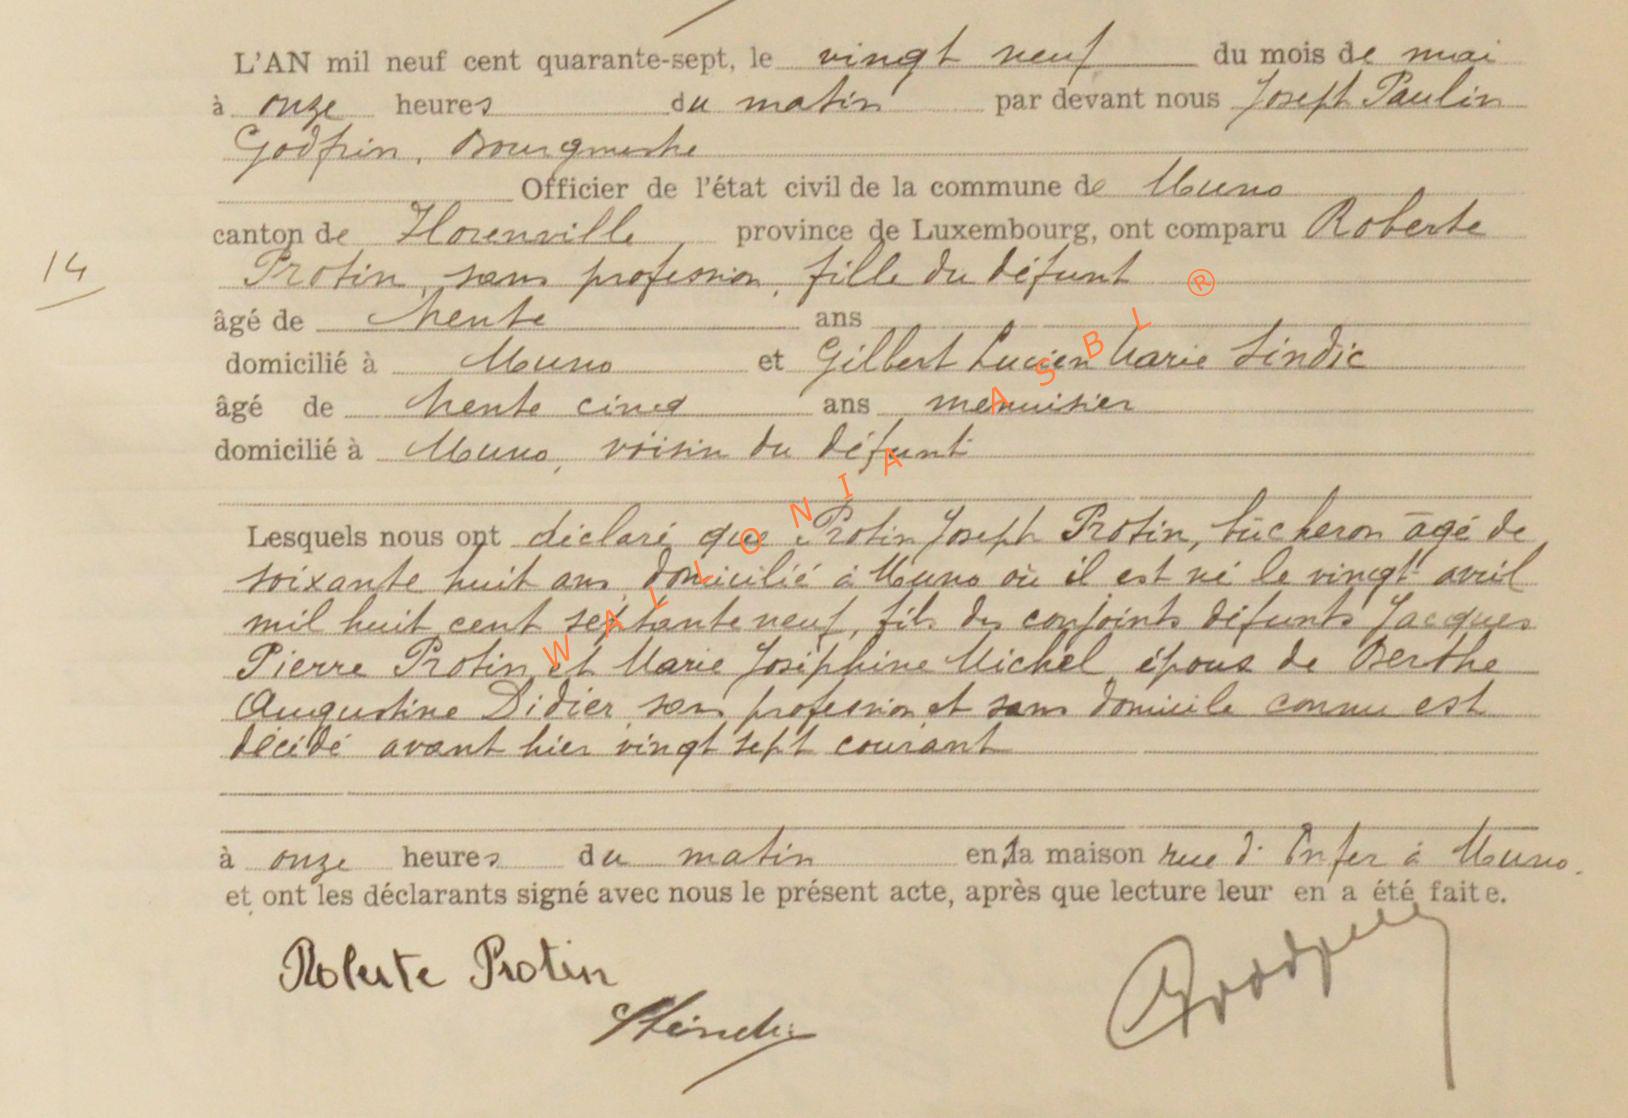 L'AN mil neuf cent quarante-sept, le vingt neuf du mois de mai
à onze heures du matin par devant nous Joseph Paulin
Godfrin, Bourgmestre
Officier de l'état civil de la commune de Muno
canton de Florenville, province de Luxembourg, ont comparu Roberte
14
Protin, sans profession, fille du défunt ®
âgé de trente ans
domicilié à Muno et Gilbert Lucien Marie Sindic
âgé de trente cinq ans menuisier
domicilié à Muno, voisin du défunt
WALLONIA ASBL
Lesquels nous ont déclaré que Protin Joseph Protin, bûcheron âgé de
soixante huit ans, domicilié à Muno où il est né le vingt avril
mil huit cent septante neuf, fils des conjoints défunts Jacques
Pierre Protin et Marie Joséphine Michel, époux de Berthe
Augustine Didier, sans profession et sans domicile connu est
décédé avant hier vingt sept courant
à onze heures du matin en la maison rue d'Enfer à Muno.
et ont les déclarants signé avec nous le présent acte, après que lecture leur en a été faite.
Roberte Protin